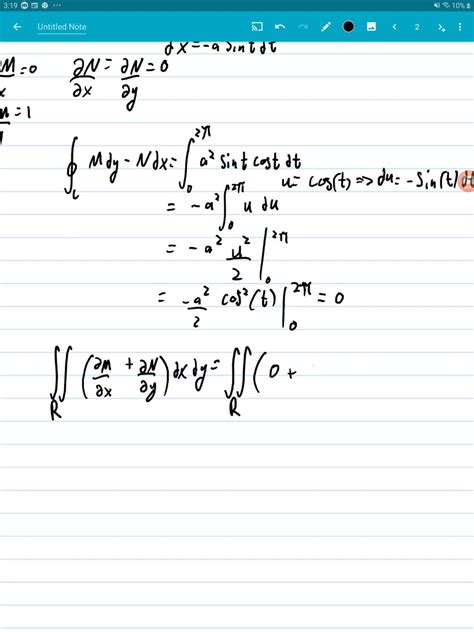 3:19 10%
Untitled Note 2
dx=-a sint dt
∂M=0 ∂N = ∂N = 0
x ∂x ∂y
=1
∮_C Mdy - Ndx = ∫_0^{2π} a² sint cost dt
u= cos(t) => du= -sin(t) dt
= -a² ∫_0^{2π} u du
= -a² u²/2 |_0^{2π}
= -a²/2 cos²(t) |_0^{2π} = 0
∬_R (∂M/∂x + ∂N/∂y) dx dy = ∬_R (0 +